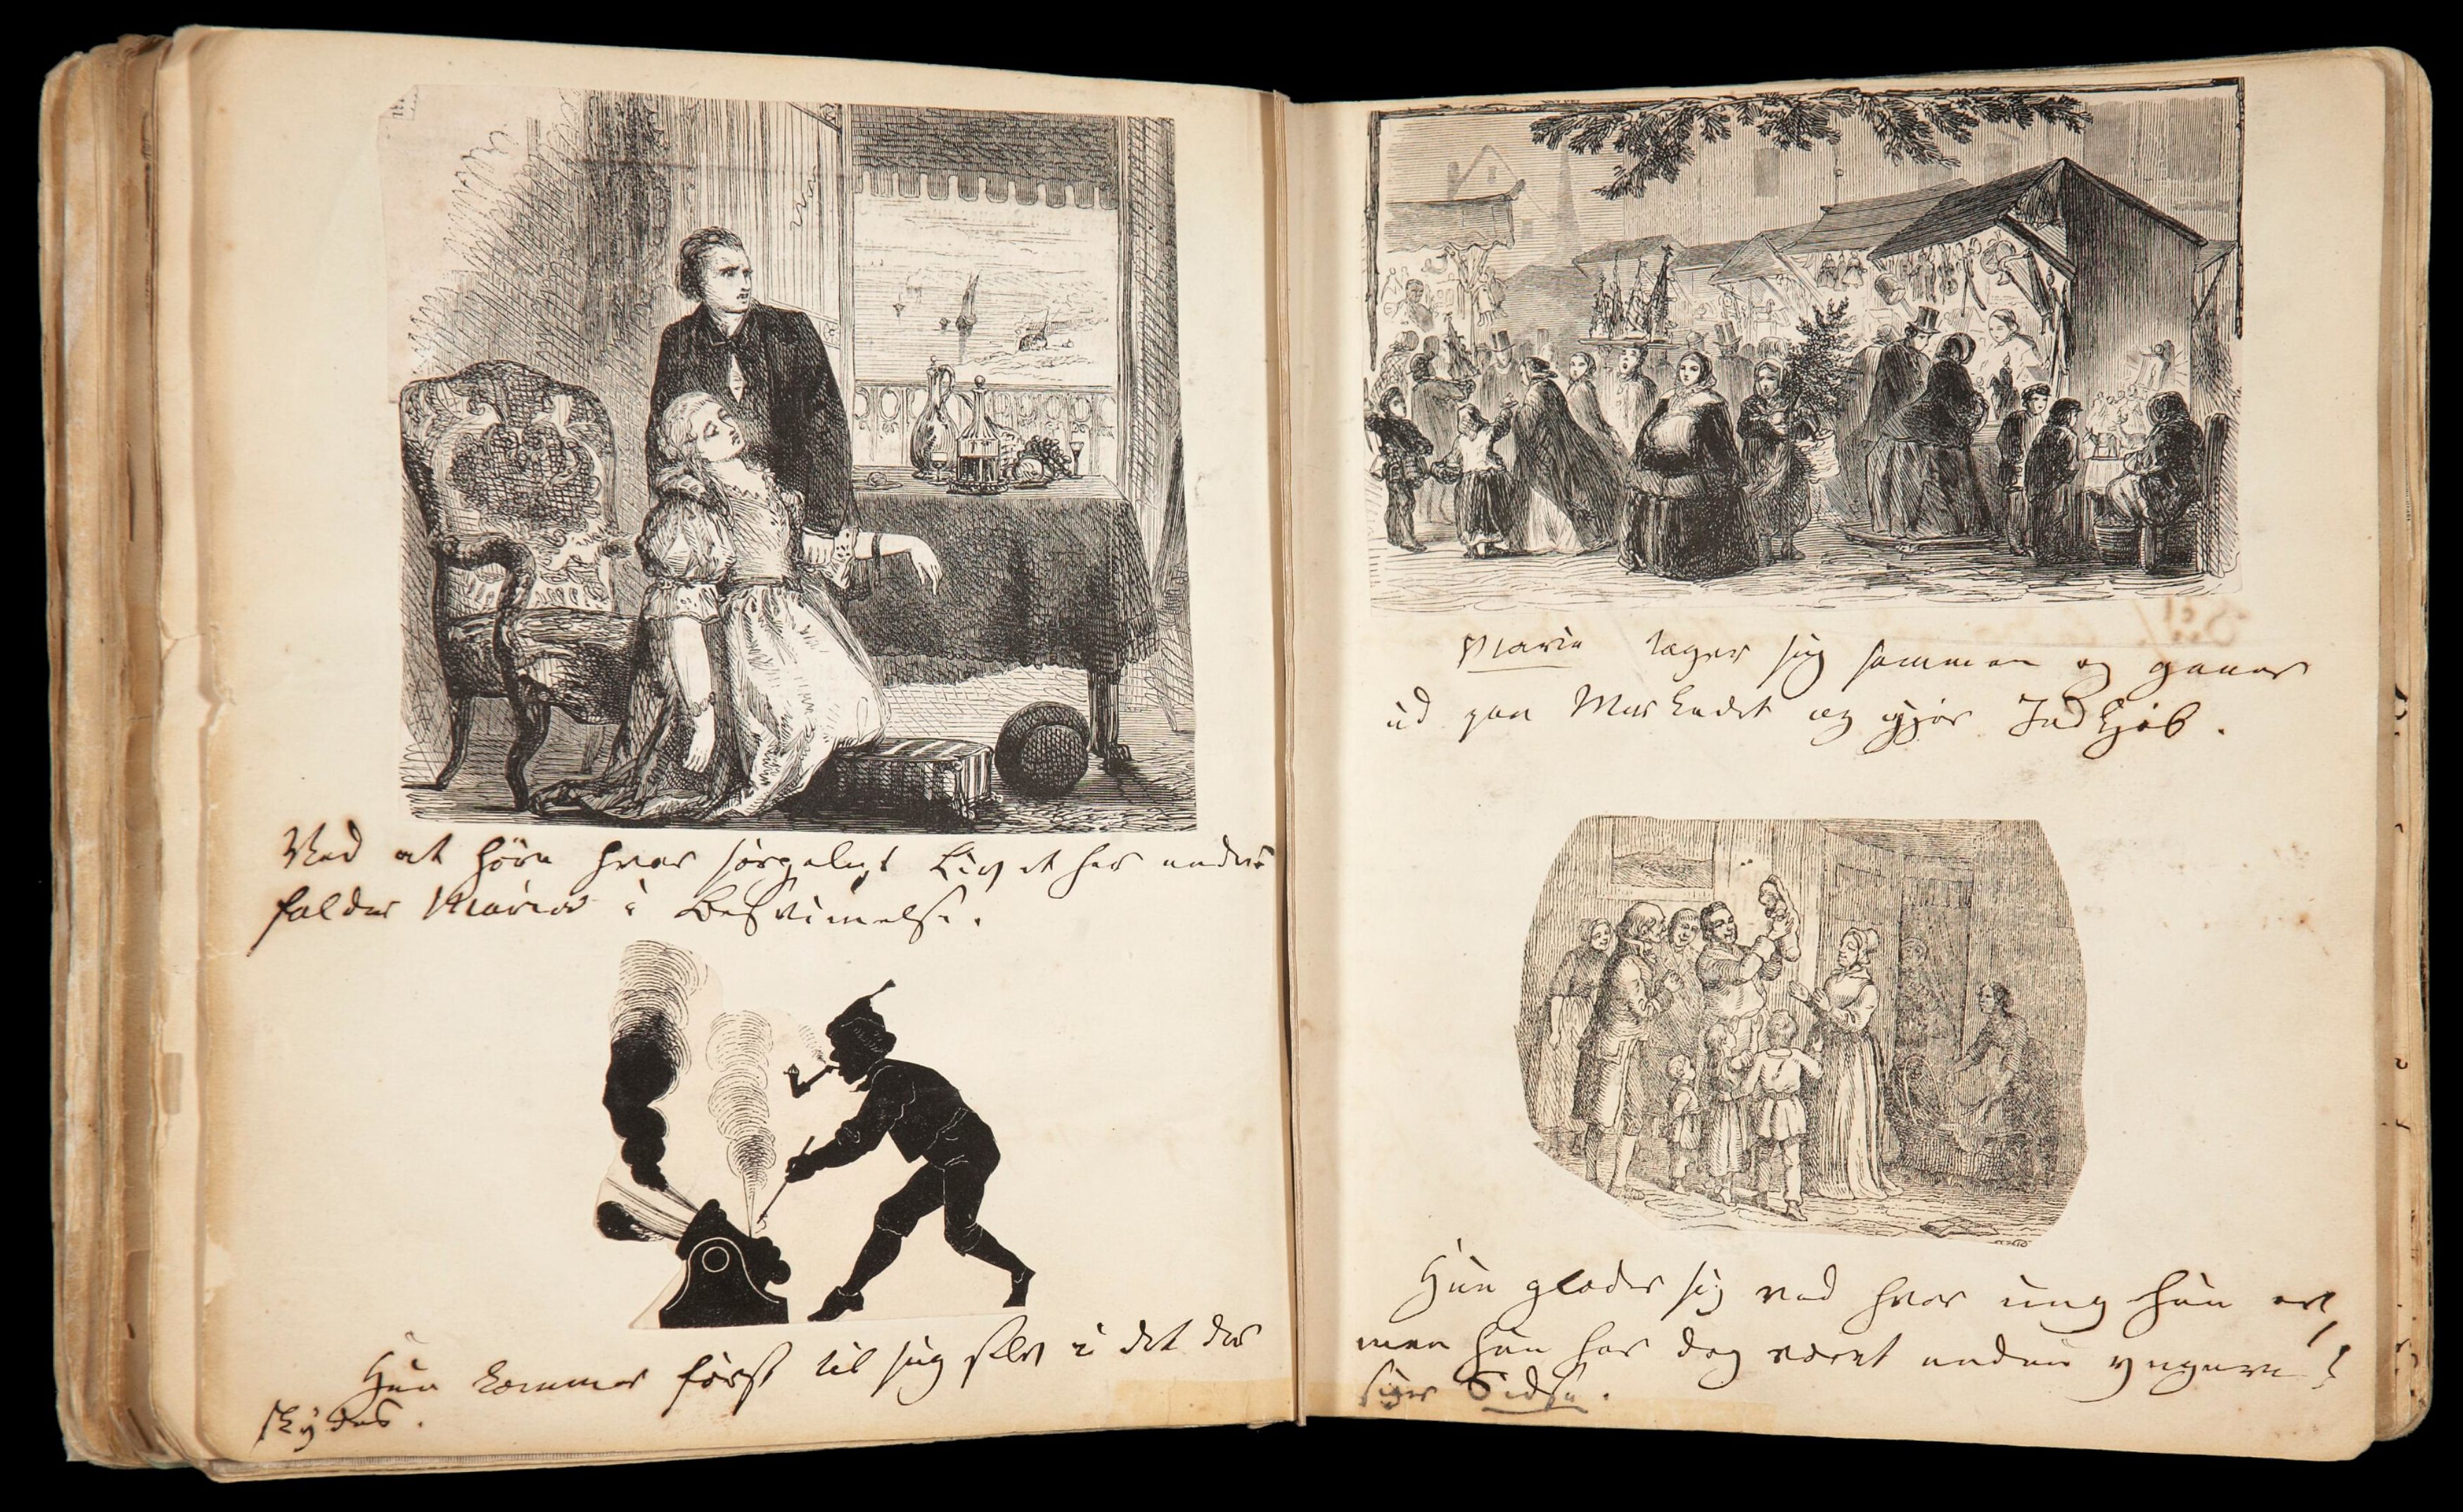 Ved at høre hvor sørgeligt Livet her ender
falder Maria i Besvimelse.
Hun kommer først til sig selv i det der
skydes.
Maria tager sig sammen og gaaer
ud paa Markedet og gjør Indkjøb.
Hun glæder sig ved hvor ung hun er,
men hun har dog været endnu yngere!
siger Sidse.